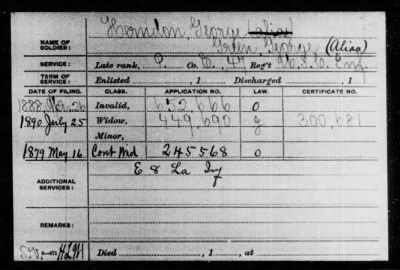 NAME OF SOLDIER: Herndon, George (alias)
Green George (Alias)
SERVICE: Late rank, P. Co. E, 47 Reg't U.S.C. Inf
TERM OF SERVICE: Enlisted , 1 Discharged , 1
DATE OF FILING. CLASS. APPLICATION NO. LAW. CERTIFICATE NO.
1888, Nov. 26 Invalid, 682,666 O
1890 July 25 Widow, 449,690 g 300,681
Minor,
1879 May 16 Cont Wid 245568 O
ADDITIONAL SERVICES: E 8 La Inf
REMARKS:
Died , 1 , at